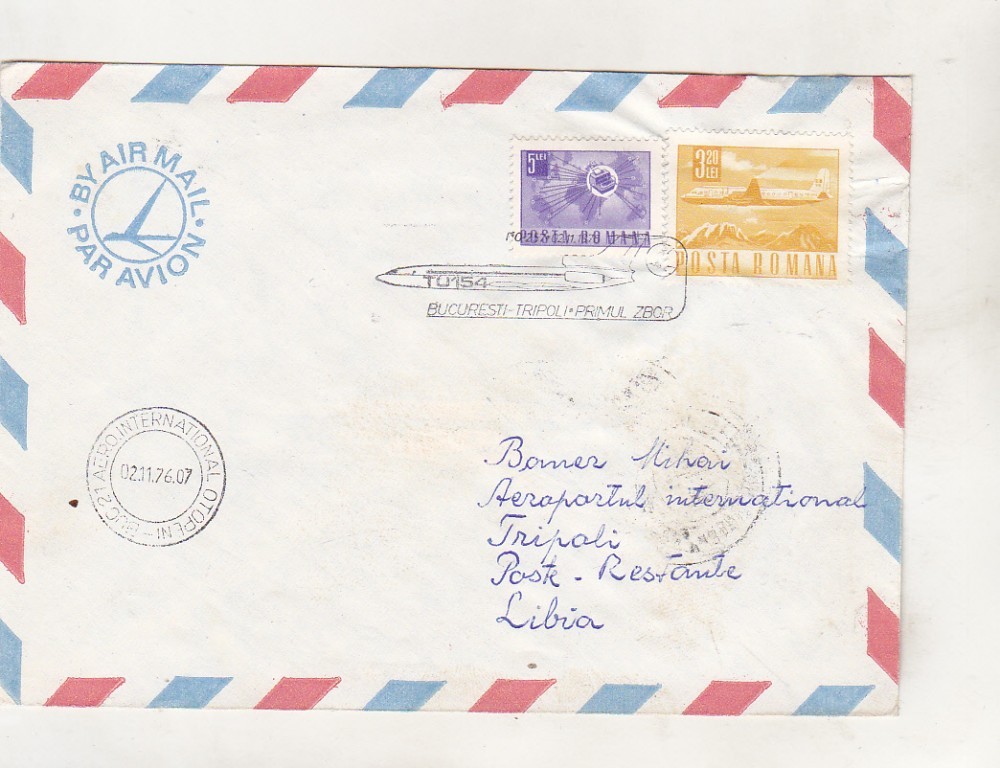 BY AIR MAIL
PAR AVION
5 LEI
POSTA ROMANA
3 20 LEI
POSTA ROMANA
TU154
BUCURESTI-TRIPOLI•PRIMUL ZBOR
BUC 21 AERO.INTERNATIONAL OTOPENI
02.11.76.07
Baner Mihai
Aeroportul international
Tripoli
Poste - Restante
Libia